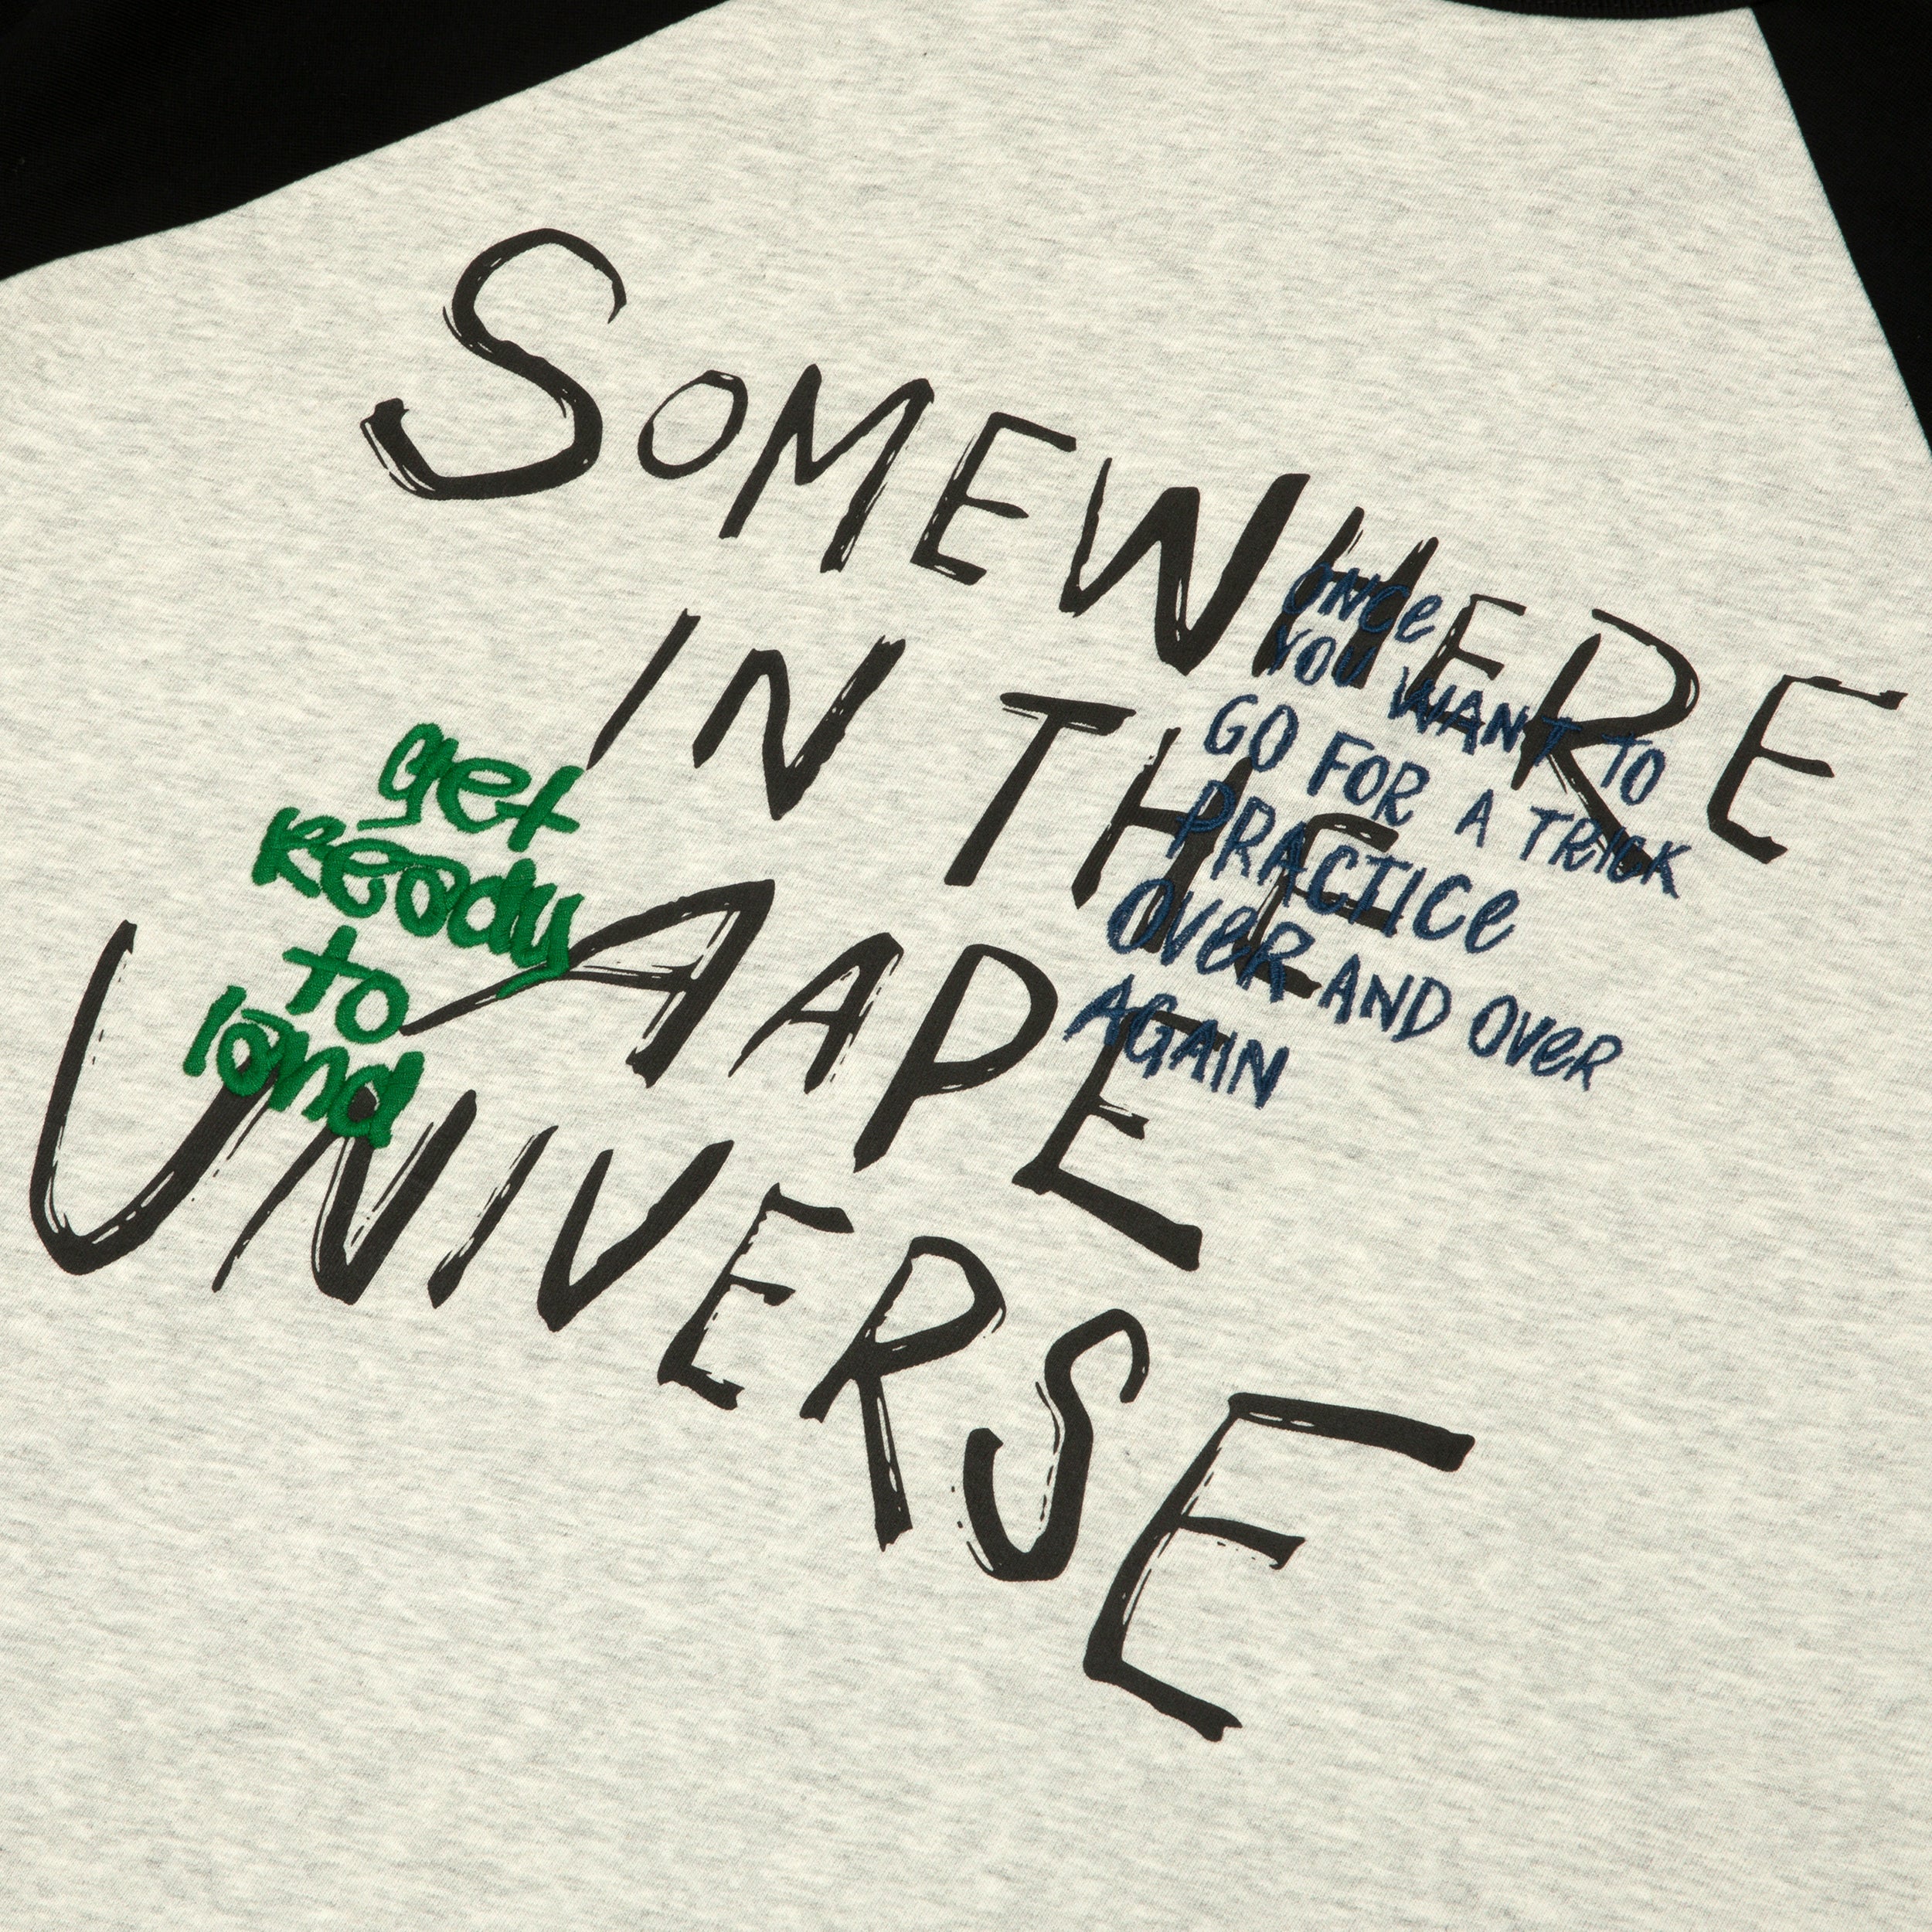 SOMEWHERE
IN THE
AAPE
UNIVERSE
ONCe
YOU WANT TO
GO FOR A TRICK
PRACTICe
OVeR AND OVeR
AGAIN
get
Ready
to
land